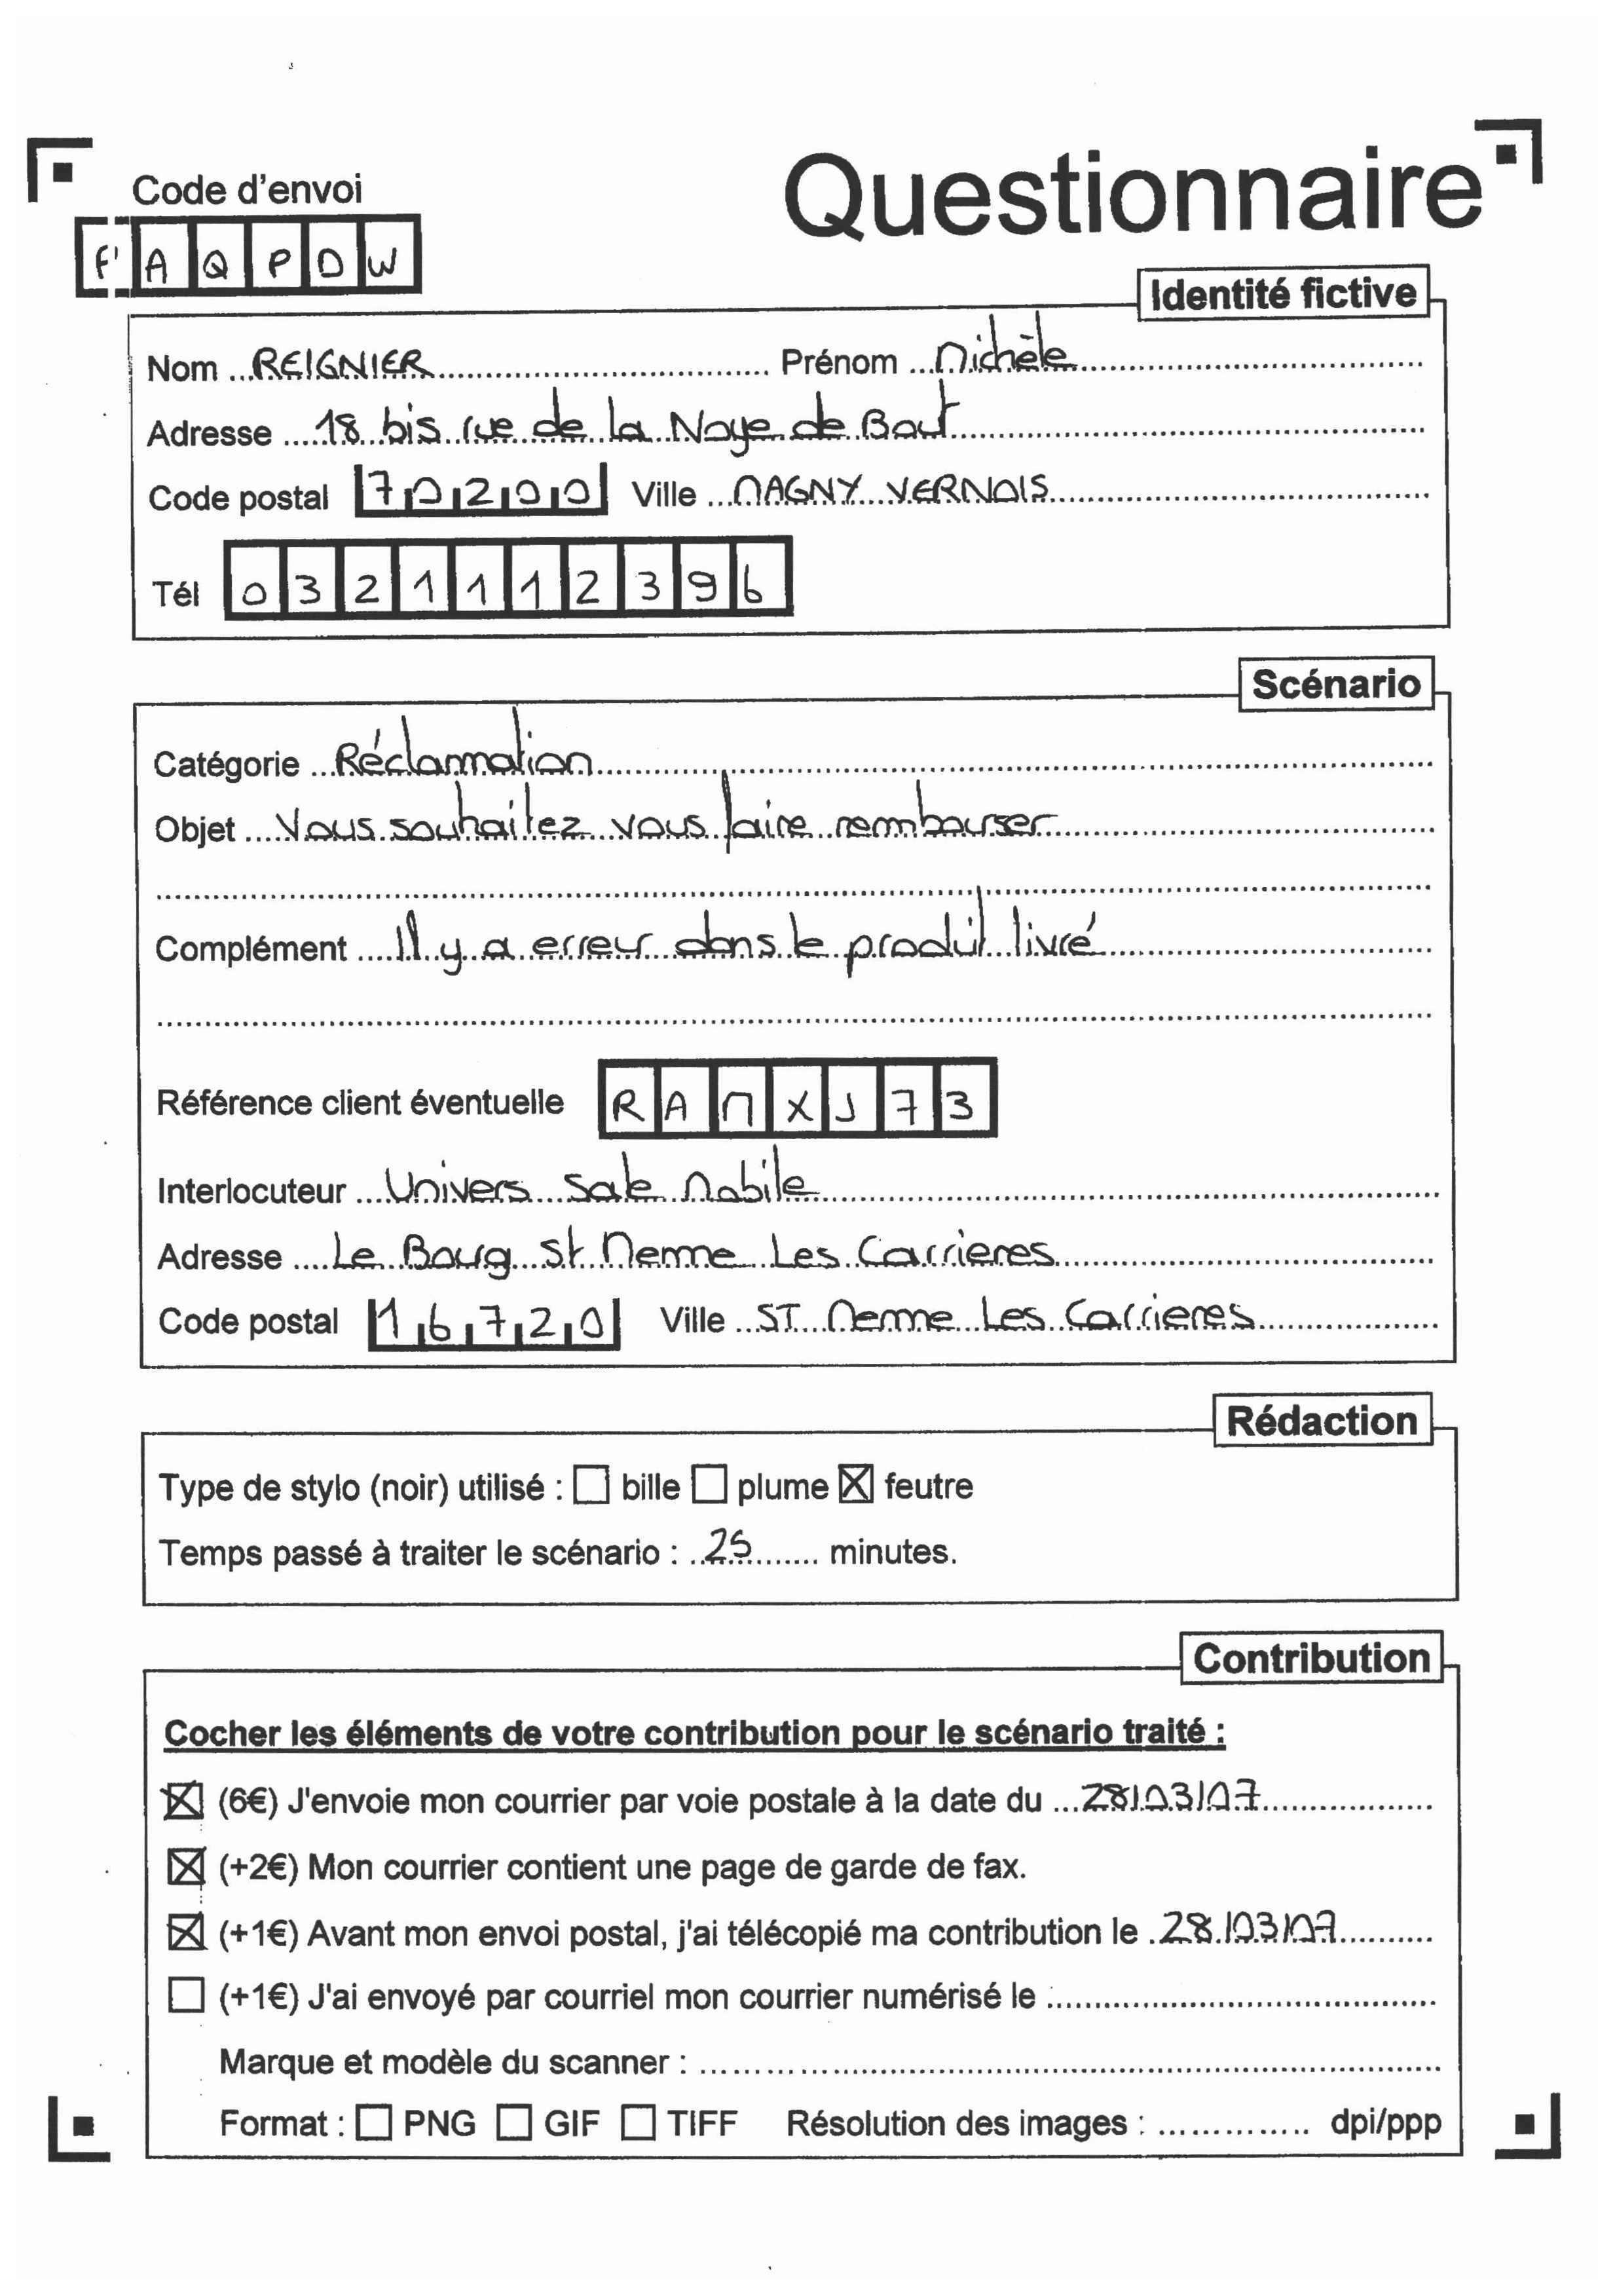 Questionnaire
Code d'envoi
F' A Q P D W
Identité fictive
Nom REIGNIER Prénom Michèle
Adresse 18 bis rue de la Noye de Bout
Code postal 70200 Ville MAGNY VERNOIS
Tél 0321112396
Scénario
Catégorie Réclammation
Objet Vous souhaitez vous faire rembourser
Complément Il y a erreur dans le produit livré
Référence client éventuelle RAMXJ73
Interlocuteur Univers Sale Mobile
Adresse Le Bourg St Meme Les Carrieres
Code postal 16720 Ville ST Meme Les Carrieres
Rédaction
Type de stylo (noir) utilisé : ☐ bille ☐ plume ☒ feutre
Temps passé à traiter le scénario : 25 minutes.
Contribution
Cocher les éléments de votre contribution pour le scénario traité :
☒ (6€) J'envoie mon courrier par voie postale à la date du 28/03/07
☒ (+2€) Mon courrier contient une page de garde de fax.
☒ (+1€) Avant mon envoi postal, j'ai télécopié ma contribution le 28/03/07
☐ (+1€) J'ai envoyé par courriel mon courrier numérisé le
Marque et modèle du scanner :
Format : ☐ PNG ☐ GIF ☐ TIFF Résolution des images : dpi/ppp